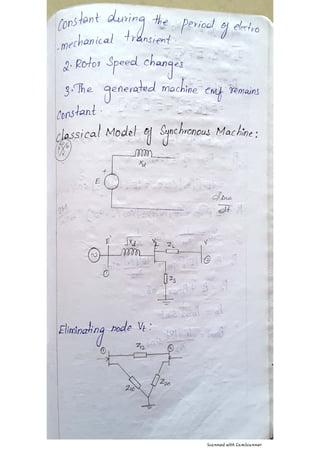 Constant during the period of electro
-mechanical transient.
2. Rotor Speed changes
3. The generated machine emf remains
Constant.
Classical Model of Synchronous Machine:
Xd
+
E
E' Xd Vt ZL V
① ②
Zs
Eliminating node Vt:
① Z12 ②
Z10 Z20
Scanned with CamScanner